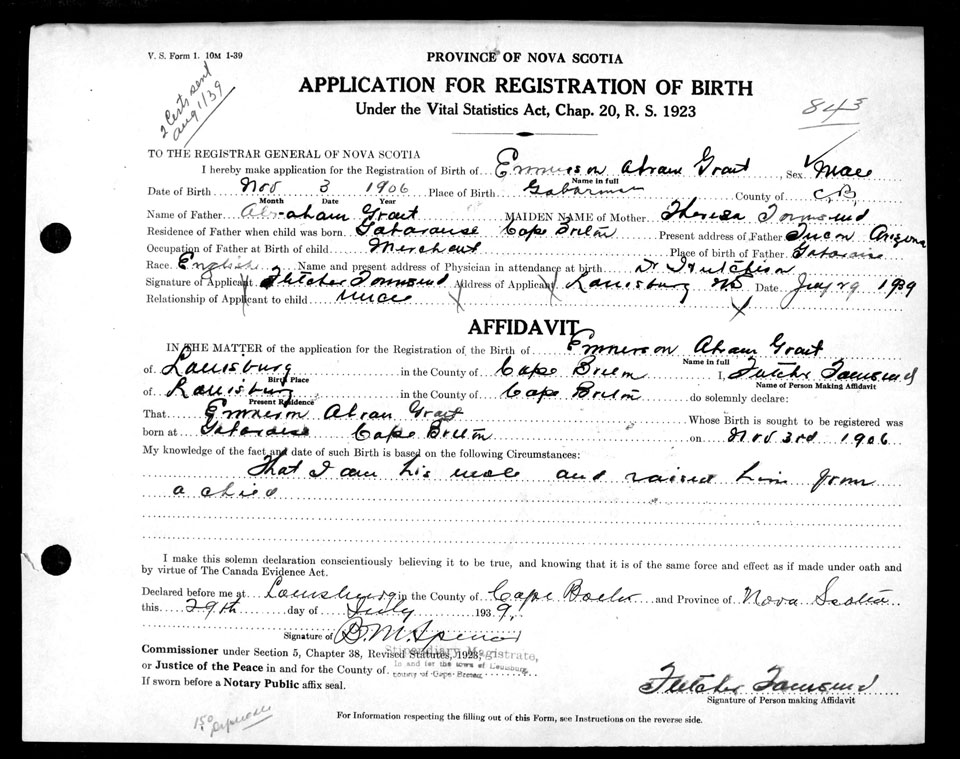 V. S. Form 1. 10M 1-39
2 Certs sent
Aug 1/39
PROVINCE OF NOVA SCOTIA
APPLICATION FOR REGISTRATION OF BIRTH
Under the Vital Statistics Act, Chap. 20, R. S. 1923
843
TO THE REGISTRAR GENERAL OF NOVA SCOTIA
I hereby make application for the Registration of Birth of Emmerson Abram Grant Sex Male
Name in full
Date of Birth Nov 3 1906 Place of Birth County of C.B.
Month Date Year
Name of Father Abraham Grant MAIDEN NAME of Mother Theresa Townsend
Residence of Father when child was born: Gabarouse Cape Breton Present address of Father Tucon Arizona
Occupation of Father at Birth of child Merchant Place of birth of Father Gabarouse
Race English Name and present address of Physician in attendance at birth Dr Hutchison
Signature of Applicant Fletcher Townsend Address of Applicant Louisburg NS Date July 29 1939
Relationship of Applicant to child uncle
AFFIDAVIT
IN THE MATTER of the application for the Registration of the Birth of Emmerson Abram Grant
Name in full
of Louisburg in the County of Cape Breton I, Fletcher Townsend
Birth Place Name of Person Making Affidavit
of Louisburg in the County of Cape Breton do solemnly declare:
Present Residence
That Emmerson Abram Grant Whose Birth is sought to be registered was
born at Gabarouse Cape Breton on Nov 3rd 1906
My knowledge of the fact and date of such Birth is based on the following Circumstances:
That I am his uncle and raised him from
a child
I make this solemn declaration conscientiously believing it to be true, and knowing that it is of the same force and effect as if made under oath and
by virtue of The Canada Evidence Act.
Declared before me at Louisburg in the County of Cape Breton and Province of Nova Scotia
this 29th day of July 1939.
Signature of B. M. Spencer
Commissioner under Section 5, Chapter 38, Revised Statutes, 1923, Stipendiary Magistrate,
or Justice of the Peace in and for the County of In and for the town of Louisburg,
County of Cape Breton
If sworn before a Notary Public affix seal.
Fletcher Townsend
Signature of Person making Affidavit
150
For Information respecting the filling out of this Form, see Instructions on the reverse side.